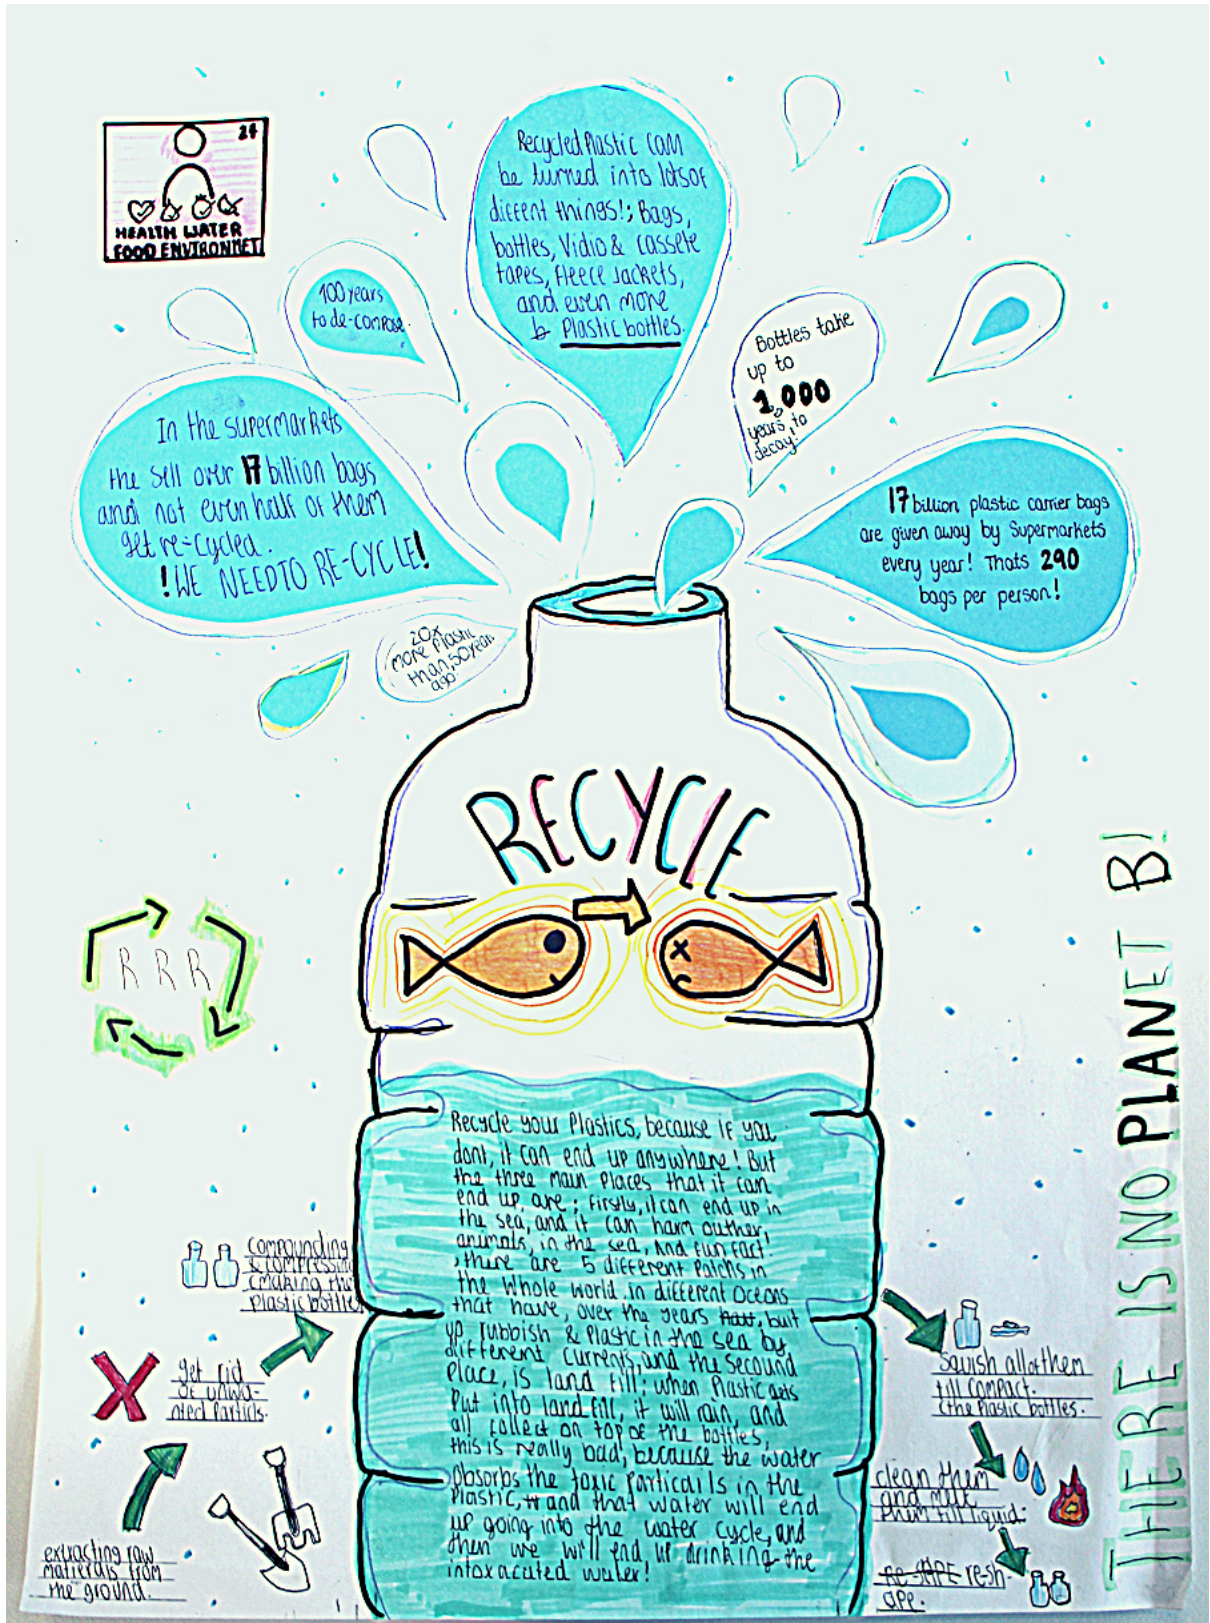 24
HEALTH WATER
FOOD ENVIRONMET
Recycled Plastic can
be turned into lots of
dicent things!; Bags,
bottles, Vidio & cassete
tapes, fleece Jackets,
and even more
Plastic bottles.
100 years
to de-compose.
Bottles take
up to
1,000
years, to
decay.
In the supermarkets
the sell over 17 billion bags
and not even half of them
get re-cycled.
!WE NEED TO RE-CYCLE!
17 billion plastic carrier bags
are given away by Supermarkets
every year! Thats 290
bags per person!
20x
more Plastic
than, 50 years
ago.
RECYCLE
R R R
THERE IS NO PLANET B!
Recycle your Plastics, because if you
dont, it can end up anywhere! But
the three main places that it can
end up, are; firstly, it can end up in
the sea, and it can harm outher,
animals, in the sea, And fun fact.
, there are 5 different Patchs in
the Whole world in different Oceans
that have, over the years built
up, rubbish & Plastic in the sea by
different currents, and the secound
Place, is land fill; when Plastic gets
Put into land fill, it will rain, and
all collect on top of the bottles,
this is really bad, because the water
Obsorbs the toxic particals in the
Plastic, and that water will end
up going into the water cycle, and
then we will end up drinking the
intoxacuted water!
compounding
& compressing
(making the
plastic bottles
get rid
of unwa-
nted Particls.
extracting raw
matierals from
the ground.
Squish all of them
till compact.
(the Plastic bottles.
clean them
and melt
them till liquid.
RE-SAPE resh-
ape.